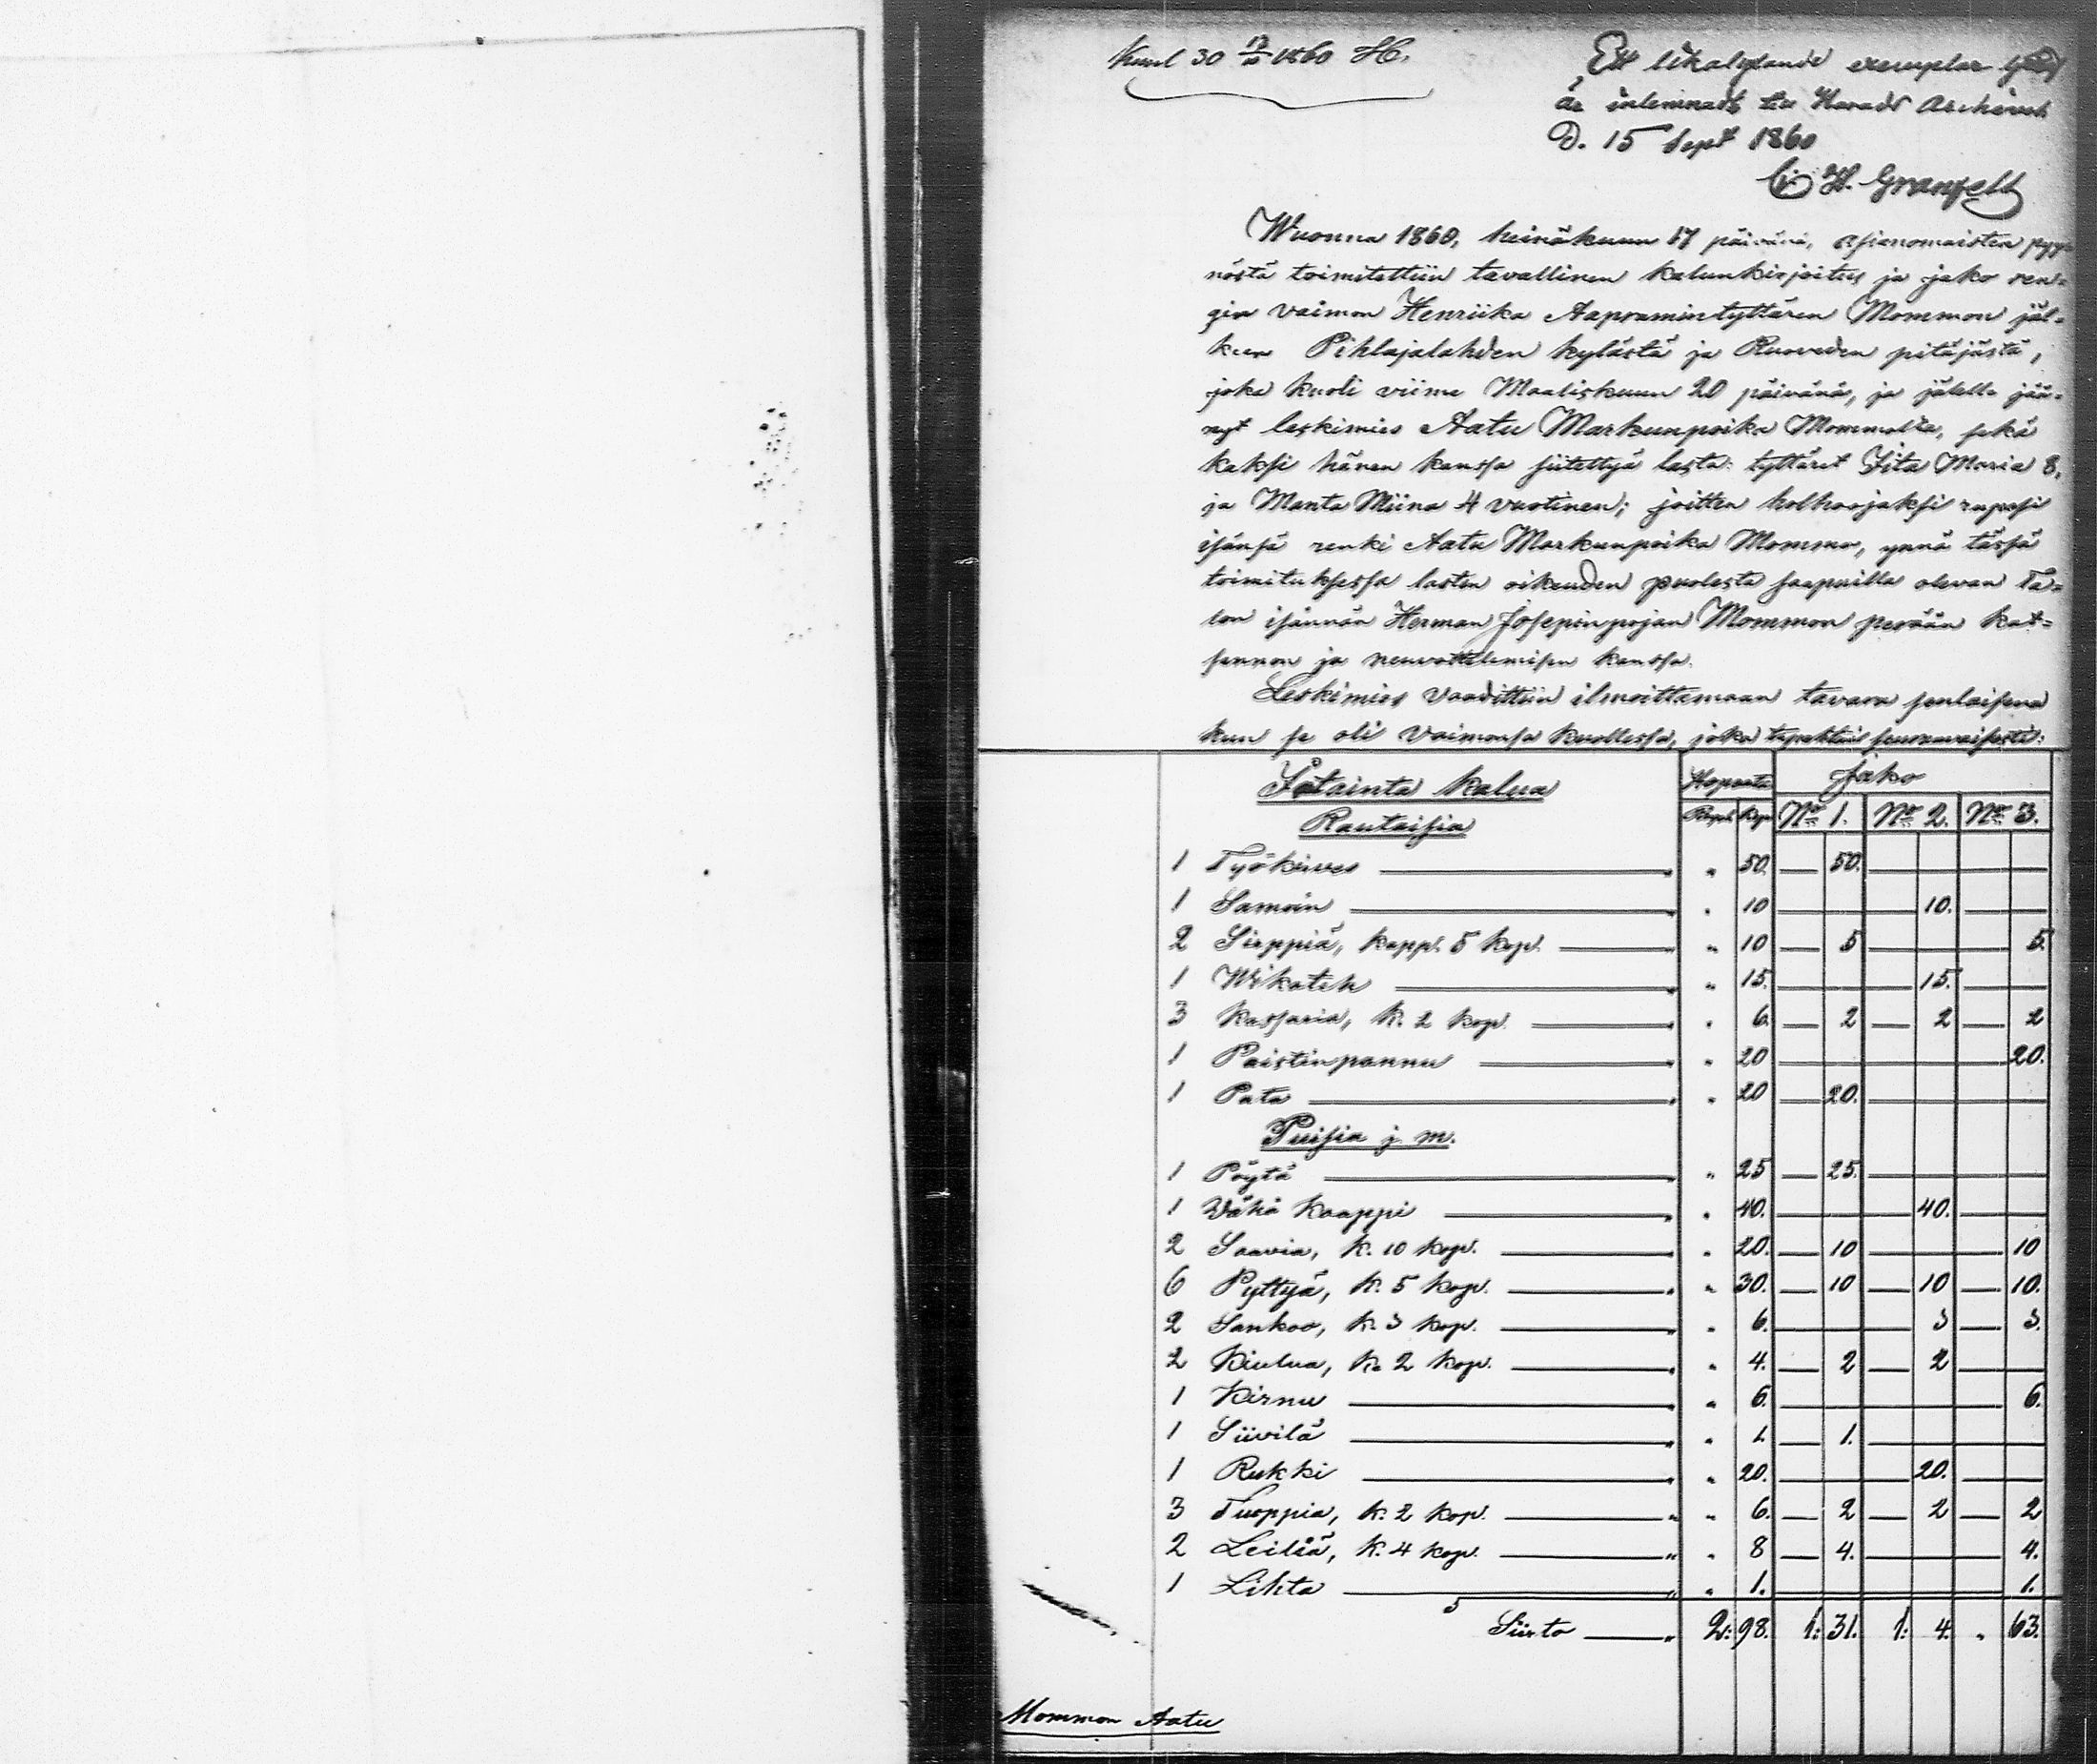 Kunl 30 17/10 1860 H.
Ett likalydande exemplar
är inlemnadt till Härads Archivet
D. 15 Sept 1860
H. Granfelt
Wuonna 1860, heinäkuun 17 päivänä, asianomaisten pyyn-
nöstä toimitettiin tavallinen kalunkirjoitus ja jako ren-
gin vaimon Henriika Aapraminttyttären Mommon jäl-
keen Pihlajalahden kylästä ja Ruoveden pitäjästä,
joka kuoli viime Maaliskuun 20 päivänä, ja jälelle jää-
nyt leskimies Aatu Markunpoika Mommolta, sekä
kaksi hänen kanssa siitettyä lasta: tyttäret Iita Maria 8,
ja Manta Miina 4 vuotinen; joitten holhoojaksi rupesi
isänsä renki Aatu Markunpoika Mommo, ynnä tässä
toimituksessa lasten oikeuden puolesta saapuilla olevan Ta-
lon isännän Herman Josepinpojan Mommon perään kat-
sannon ja neuvottelemisen kanssa.
Leskimies vaadittiin ilmoittamaan tavara senlaisena
kun se oli vaimonsa kuollessa, joka tapahtui seuraavaisesti:
Irtainta kalua Hopeata Jako
Rautaisia Rupl. Kop. No 1. No 2. No 3.
1 Työkirves " 50. 50.
1 Samoin " 10 10.
2 Sirppiä, kappl. 5 kop. " 10 5 5.
1 Wikateh " 15. 15.
3 Kassaria, k. 2 kop. " 6. 2 2 2
1 Paistinpannu " 20 20.
1 Pata " 20 20.
Puisia j. m.
1 Pöytä " 25 25.
1 Vähä kaappi " 40. 40.
2 Saavia, k. 10 kop. " 20. 10 10
6 Pyttyä, k. 5 kop. " 30. 10 10 10.
2 Sankoo, k. 3 kop. " 6. 3 3.
2 Kiulua, k. 2 kop. " 4. 2 2
1 Kirnu " 6. 6.
1 Siivilä " 1. 1.
1 Rukki " 20. 20.
3 Tuoppia, k. 2 kop. " 6. 2 2 2
2 Leiliä, k. 4 kop. " 8 4. 4.
1 Lihta " 1. 1.
Siirto " 2: 98. 1: 31. 1: 4. " 63.
Mommon Aatu